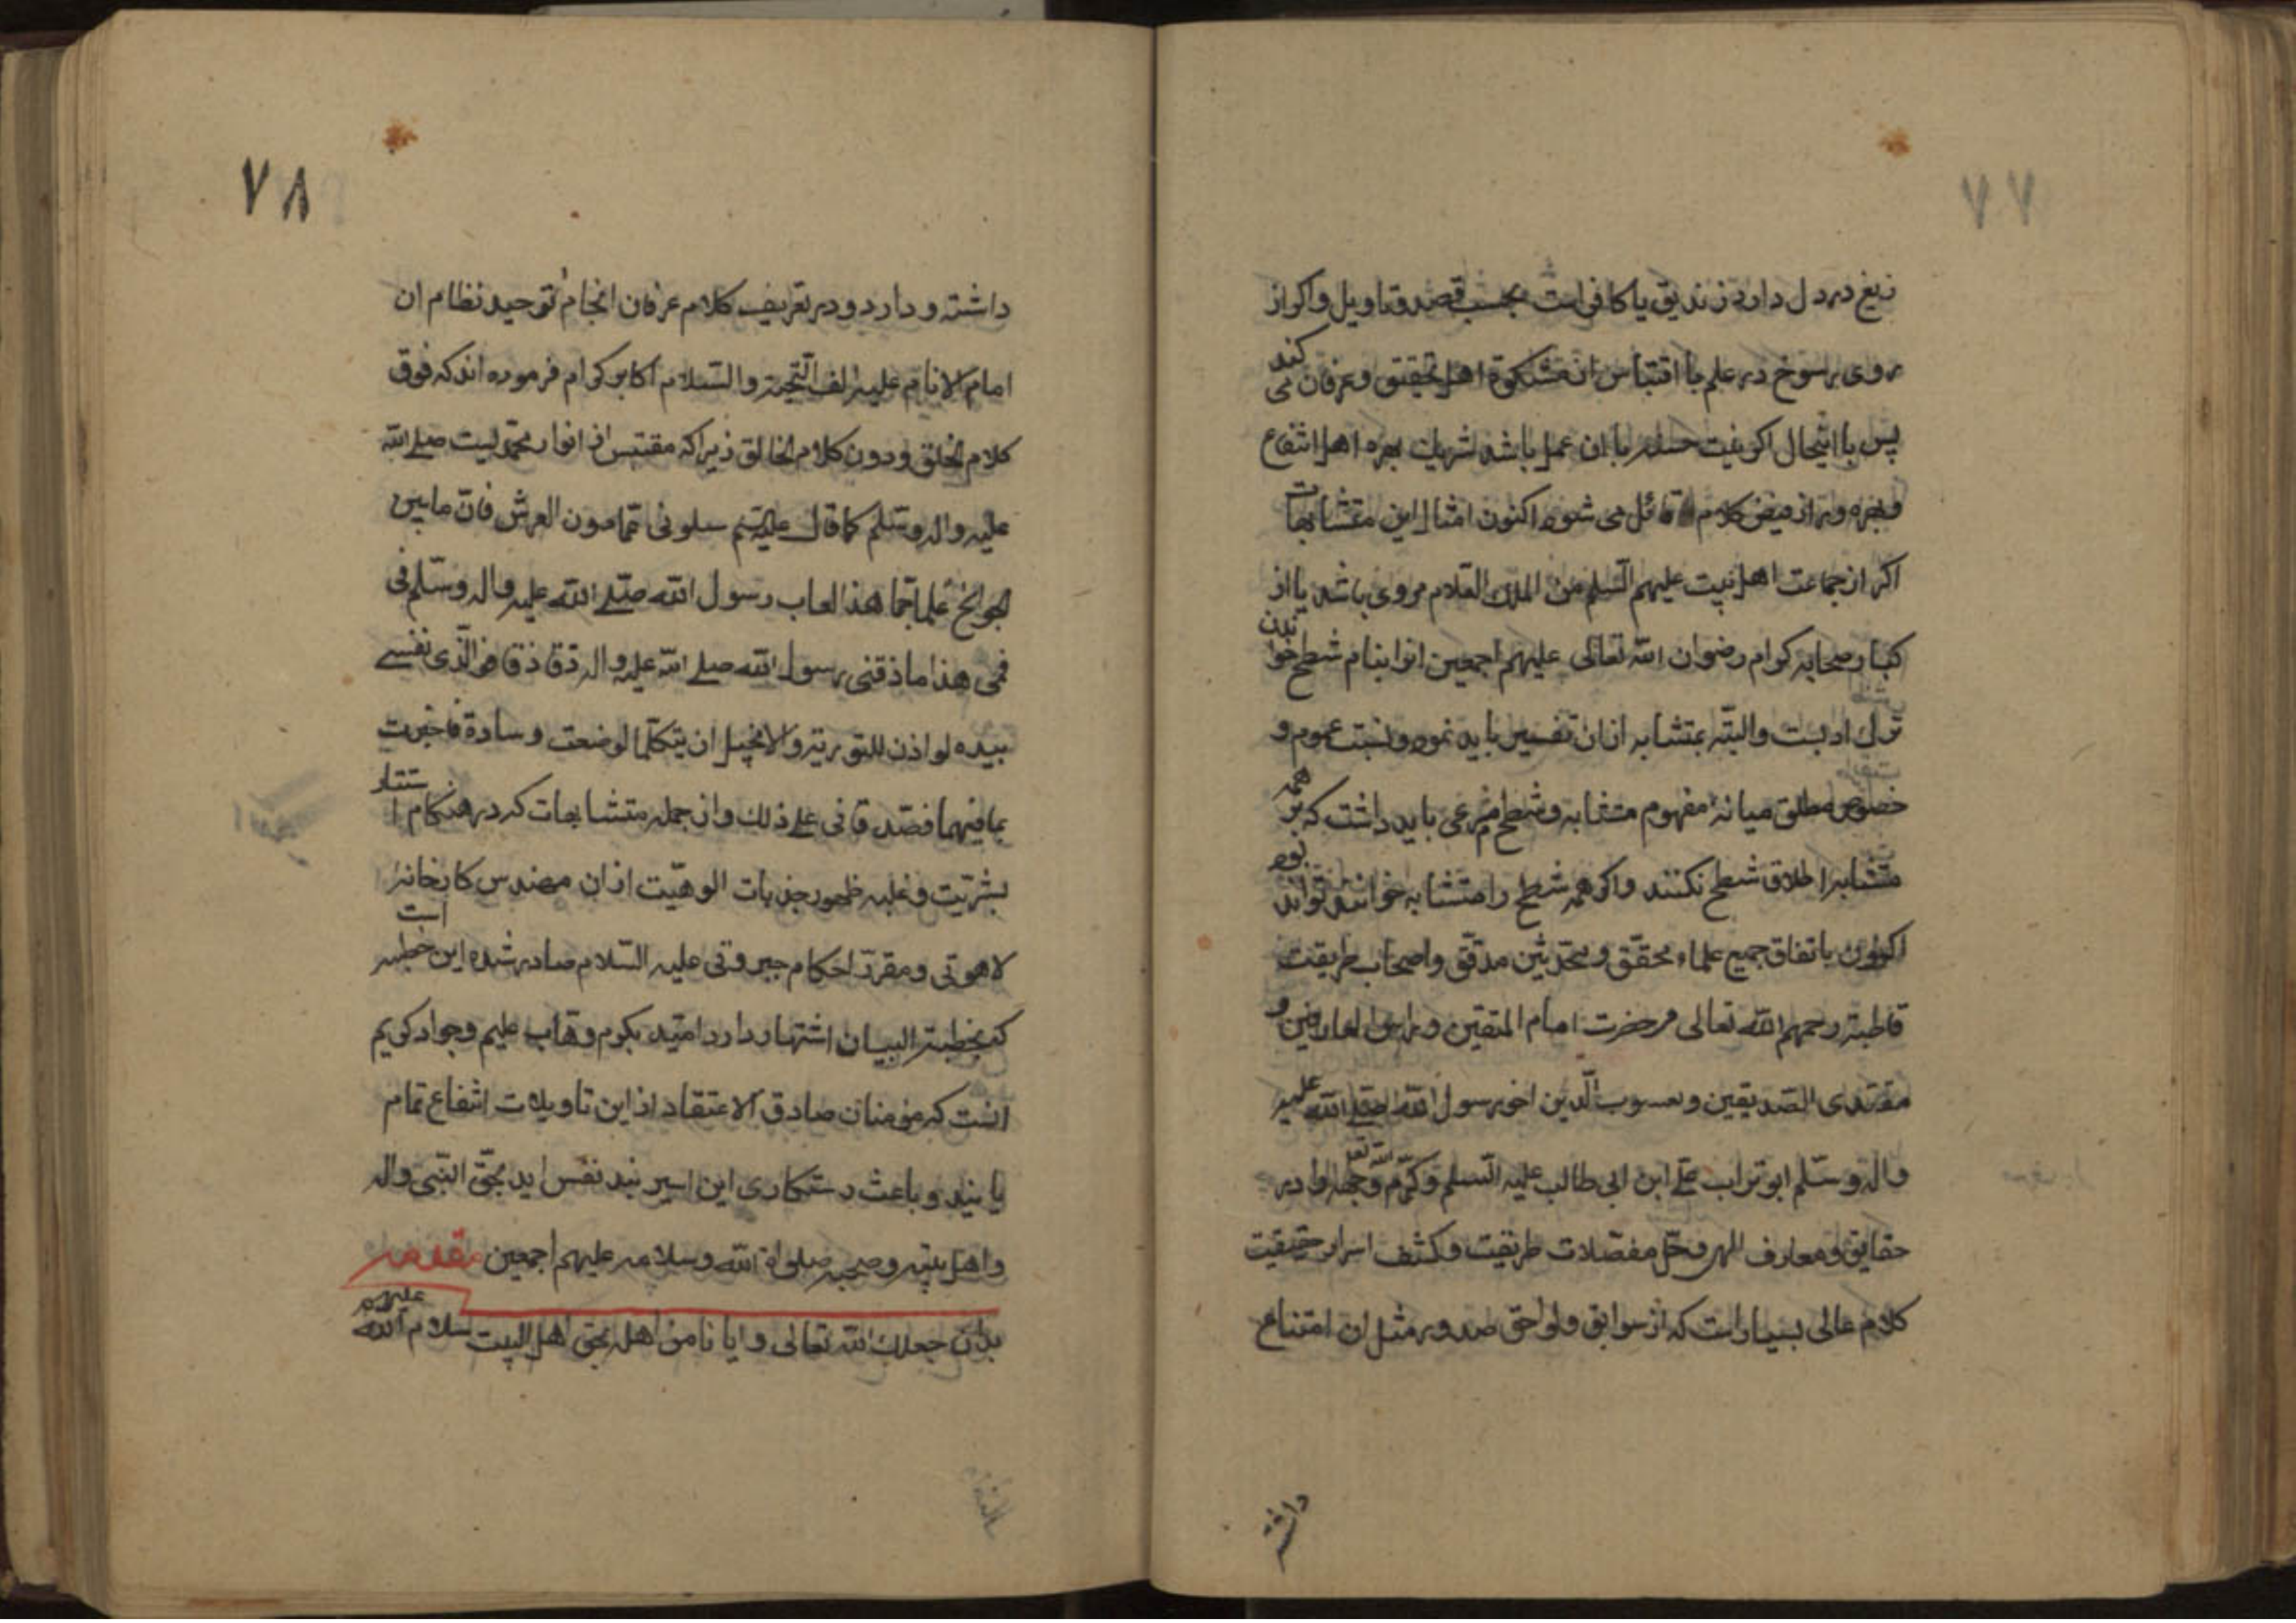 ٧٧
زیغ در دل دارد زندیق یا کافر است بحسب قصد و تاویل و اکر از
روی رسوخ در علم با اقتباس از مشکوة اهل تحقیق و عرفان می کند
پس با اینحال اکر نیت حسنه با ان عمل باشد بهره اهل انتفاع
و بهره ور از فیض کلام قائل می شود اکنون امثال این متشابهات
اکر از جماعت اهل بیت علیهم السلم من الملک العلام مروی باشد یا از
کبار صحابه کرام رضوان الله تعالی علیهم اجمعین انرا بنام شطح خواندن
ترک ادبست و البته بمتشابه ازان تفسیر باید نمود و نسبت عموم و
خصوص مطلق میانهٔ مفهوم متشابه و شطح مرعی باید داشت که بر همه
متشابه اطلاق شطح نکنند و اکر همه شطح را متشابه خوانند تواند بود
اکنون باتفاق جمیع علماء محقق و محدثین مدقق و اصحاب طریقت
قاطبة رحمهم الله تعالی مر حضرت امام المتقین و راس العارفین و
مقتدی الصدیقین و یعسوب الدین اخو رسول الله صلی الله علیه
واله وسلم ابو تراب علی ابن ابی طالب علیه السلم و کرّم الله تع وجهه را در
حقایق و معارف الهی و حل مفصلات طریقت و کشف اسرار حقیقت
کلام عالی بسیار است که از سوابق و لواحق صدور مثل ان امتناع
داشته
٧٨
داشته و دارد و در تعریف کلام عرفان انجام توحید نظام ان
امام الانام علیه الف التحیة والسلام اکابر کرام فرموده اند که فوق
کلام الخلق و دون کلام الخالق زیرا که مقتبس از انوار محمدیست صلی الله
علیه واله وسلم کما قال سلونی عمّا دون العرش فانّ ما بین
الجوانح علما جمّا هذا لعاب رسول الله صلّی الله علیه واله وسلّم فی
فمی هذا ما ذقنی رسول الله صلی الله علیه واله ذقا ذقا فوالّذی نفسے
بیده لو اذن للتوریة والانجیل ان یتکلما لوضعت وسادة فاخبرت
بما فیهما فصدقانی علی ذلک و از جمله متشابهات که در هنکام استتار
بشریّت و غلبه ظهور جذبات الوهیّت ازان مهندس کارخانهٔ
لاهوتی و مقرر احکام جبروتی علیه السّلام صادر شده این خطبه است
که بخطبة البیان اشتهار دارد امید بکرم وهّاب علیم و جواد کریم
انست که مؤمنان صادق الاعتقاد از این تاویلات انتفاع تمام
یابند و باعث رستکاری این اسیر بند نفس اید بحقّ النّبی واله
واهل بیته وصحبه صلواة الله وسلامه علیهم اجمعین مقدمه
بدان جعلک الله تعالی و ایانا من اهله بحق اهل البیت سلام الله علیهم